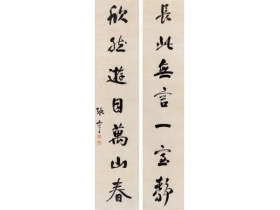 長此無言一室靜
欣然遊目萬山春
張謇